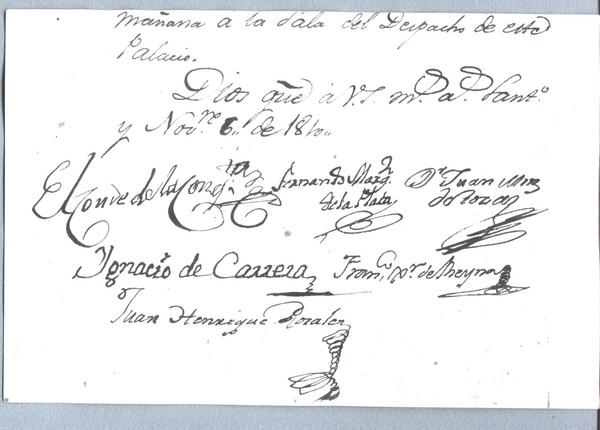 mañana à la Sala del Despacho de este
Palacio.
Dios gue̅ à V.S. ms. as. Santo.
y Novre. 6,, de 1810,,
El Conde de la Conqta.
Fernando Marqz
de la Plata
Dr. Juan Mrz
de Rozas
Ygnacio de Carrera
Franco. Xr. de Reyna
Juan Henrique Rosales